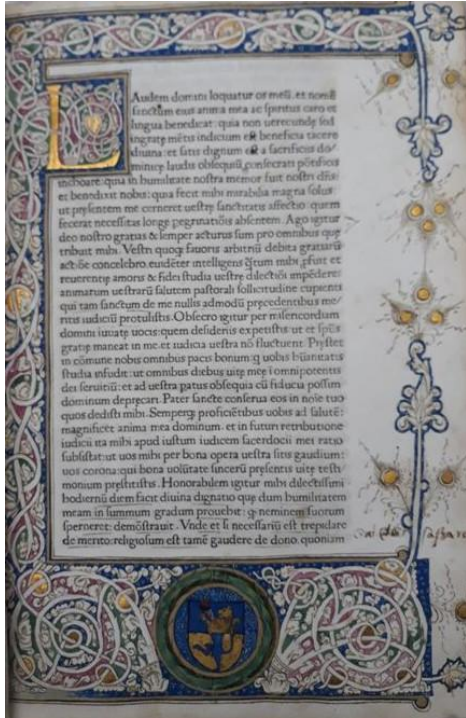 LAudem domini loquatur os meũ. et nomẽ
sanctum eius anima mea ac spiritus caro et
lingua benedicat: quia non uerecundę sed
ingratę mẽtis indicium est beneficia tacere
diuina: et satis dignum est a sacrificiis do/
minicę laudis obsequiũ consecrati põtificis
inchoare. quia in humilitate nostra memor fuit nostri dñs:
et benedixit nobis: quia fecit mihi mirabilia magna solus
ut presentem me cerneret uestrę sanctitatis affectio: quem
fecerat necessitas longę pegrinatiõis absentem. Ago igitur
deo nostro gratias & semper acturus sum pro omnibus quę
tribuit mihi. Vestri quoq; fauoris arbitriũ debita gratiarũ
actiõe concelebro. euidẽter intelligens q̃tum mihi psint et
reuerentię amoris & fidei studia uestrę dilectiõi impẽdere:
animarum uestrarũ salutem pastorali sollicitudine cupienti
qui tam sanctum de me nullis admodũ pręcedentibus me/
ritis iudiciũ protulistis. Obsecro igitur per misericordiam
domini iuuate uotis: quem desideriis expetistis: ut et spũs
gratię maneat in me. et iudicia uestra nõ fluctuent. Pręstet
in cõmune nobis omnibus pacis bonum: q uobis hũanitatis
studia infudit: ut omnibus diebus uitę meę ĩ omnipotentis
dei seruitiũ: et ad uestra patus obsequia cũ fiducia possim
dominum deprecari. Pater sancte conserua eos in noĩe tuo
quos dedisti mihi. Semperq; proficiẽtibus uobis ad salutẽ:
magnificet anima mea dominum. et in futuri retributione
iudicii ita mihi apud iustum iudicem sacerdocii mei ratio
subsistat: ut uos mihi per bona opera uestra sitis gaudium:
uos corona: qui bona uolũtate sincerũ presentis uitę testi/
monium pręstitistis. Honorabilem igitur mihi dilectissimi
hodiernũ diem facit diuina dignatio quę dum humilitatem
meam in summum gradum prouehit: q neminem suorum
sperneret: demõstrauit. Vnde et si necessariũ est trepidare
de merito: religiosum est tamẽ gaudere de dono. quoniam